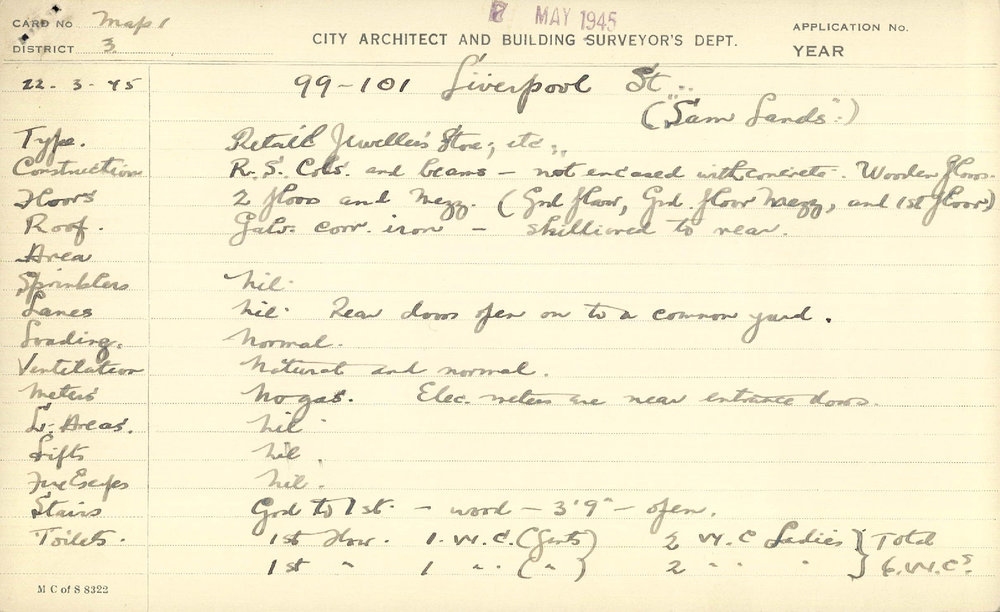 CARD No Map 1
7 MAY 1945
APPLICATION No.
DISTRICT 3
CITY ARCHITECT AND BUILDING SURVEYOR'S DEPT.
YEAR
22-3-45 99-101 Liverpool St..
("Sam Lands".)
Type. Retail Jeweller's Store, etc.,
Construction R.S. Cols. and beams - not encased with concrete. Wooden floors.
Floors 2 floors and Mezz. (Grd floor, Grd floor Mezz, and 1st floor)
Roof. Galv. corr. iron - skillioned to rear.
Area
Sprinklers Nil.
Lanes Nil. Rear doors open on to a common yard.
Loading. Normal.
Ventilation Natural and normal.
Meters No gas. Elec. meters are near entrance doors.
L. Areas. Nil
Lifts Nil.
Fire Escapes Nil.
Stairs Grd to 1st. - wood - 3'9" - open.
Toilets. 1st Floor. 1. W.C. (Gents) 2 W.C Ladies } Total
1st " 1 " " ( " ) 2 " " " } 6. W.Cs.
M C of S 8322